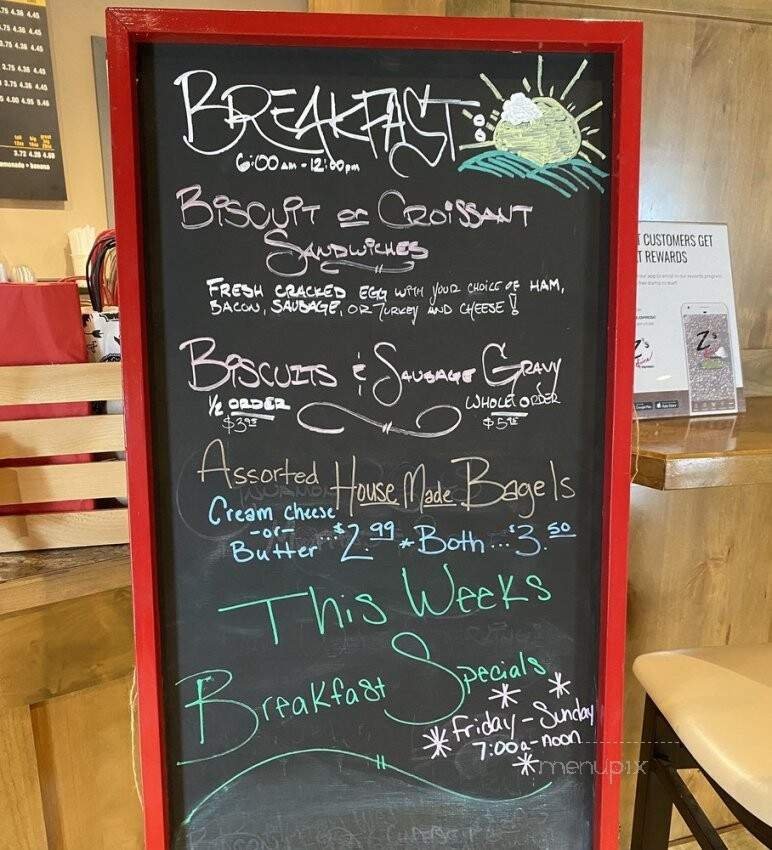 BREAKFAST:
6:00 AM - 12:00 pm
BISCUIT or CROISSANT
SANDWICHES
FRESH CRACKED EGG WITH YOUR CHOICE OF HAM,
BACON, SAUSAGE, OR TURKEY AND CHEESE!
BISCUITS & SAUSAGE GRAVY
1/2 ORDER
WHOLE ORDER
Assorted House Made Bagels
Cream cheese
-or-
Butter ...$2.99 * Both ...$3.50
This Weeks
Breakfast Specials
* Friday - Sunday
7:00a - noon
menupix
T CUSTOMERS GET
T REWARDS
Z's